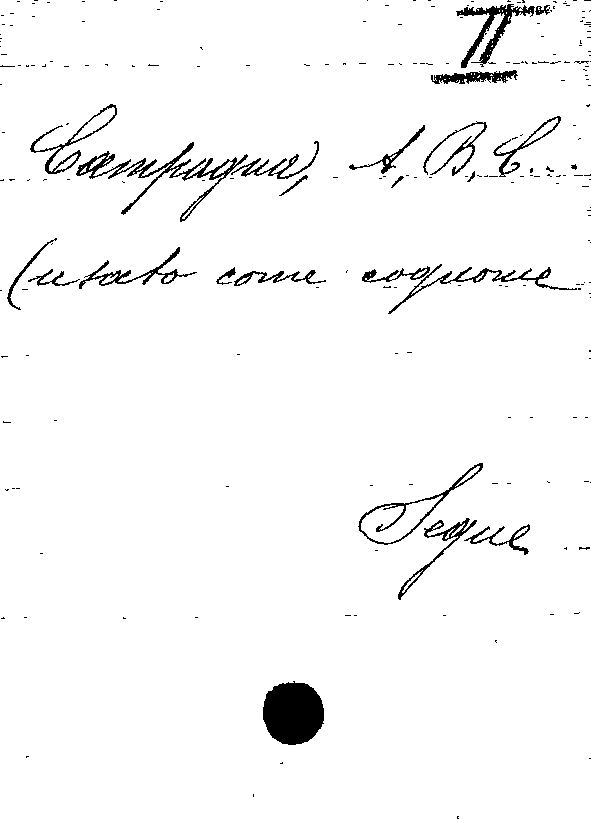 II
Campagna, A, B, C...
(usato come cognome
Segue